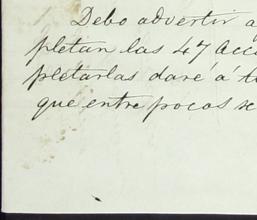 Debo advertir a
pletan las 47 acci
pletarlas daré á t
que entre pocos se